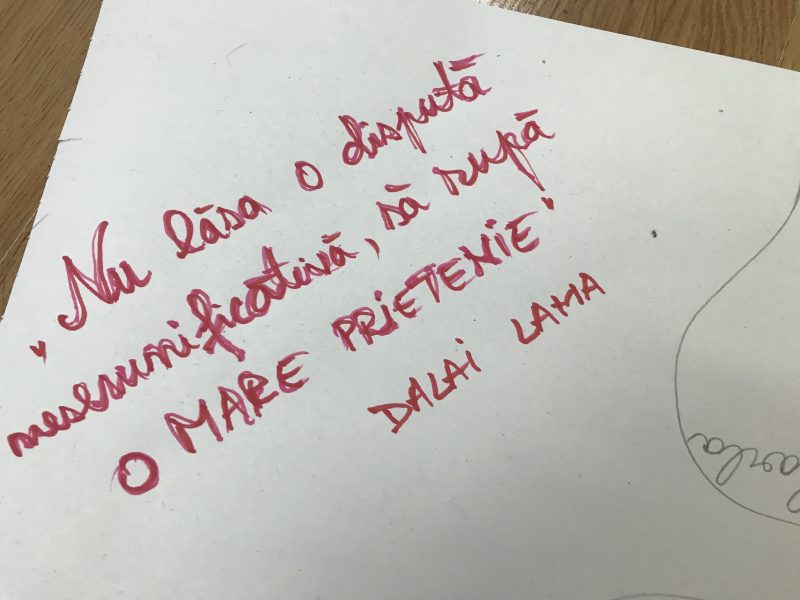 „Nu lăsa o dispută
nesemnificativă, să rupă
O MARE PRIETENIE"
DALAI LAMA